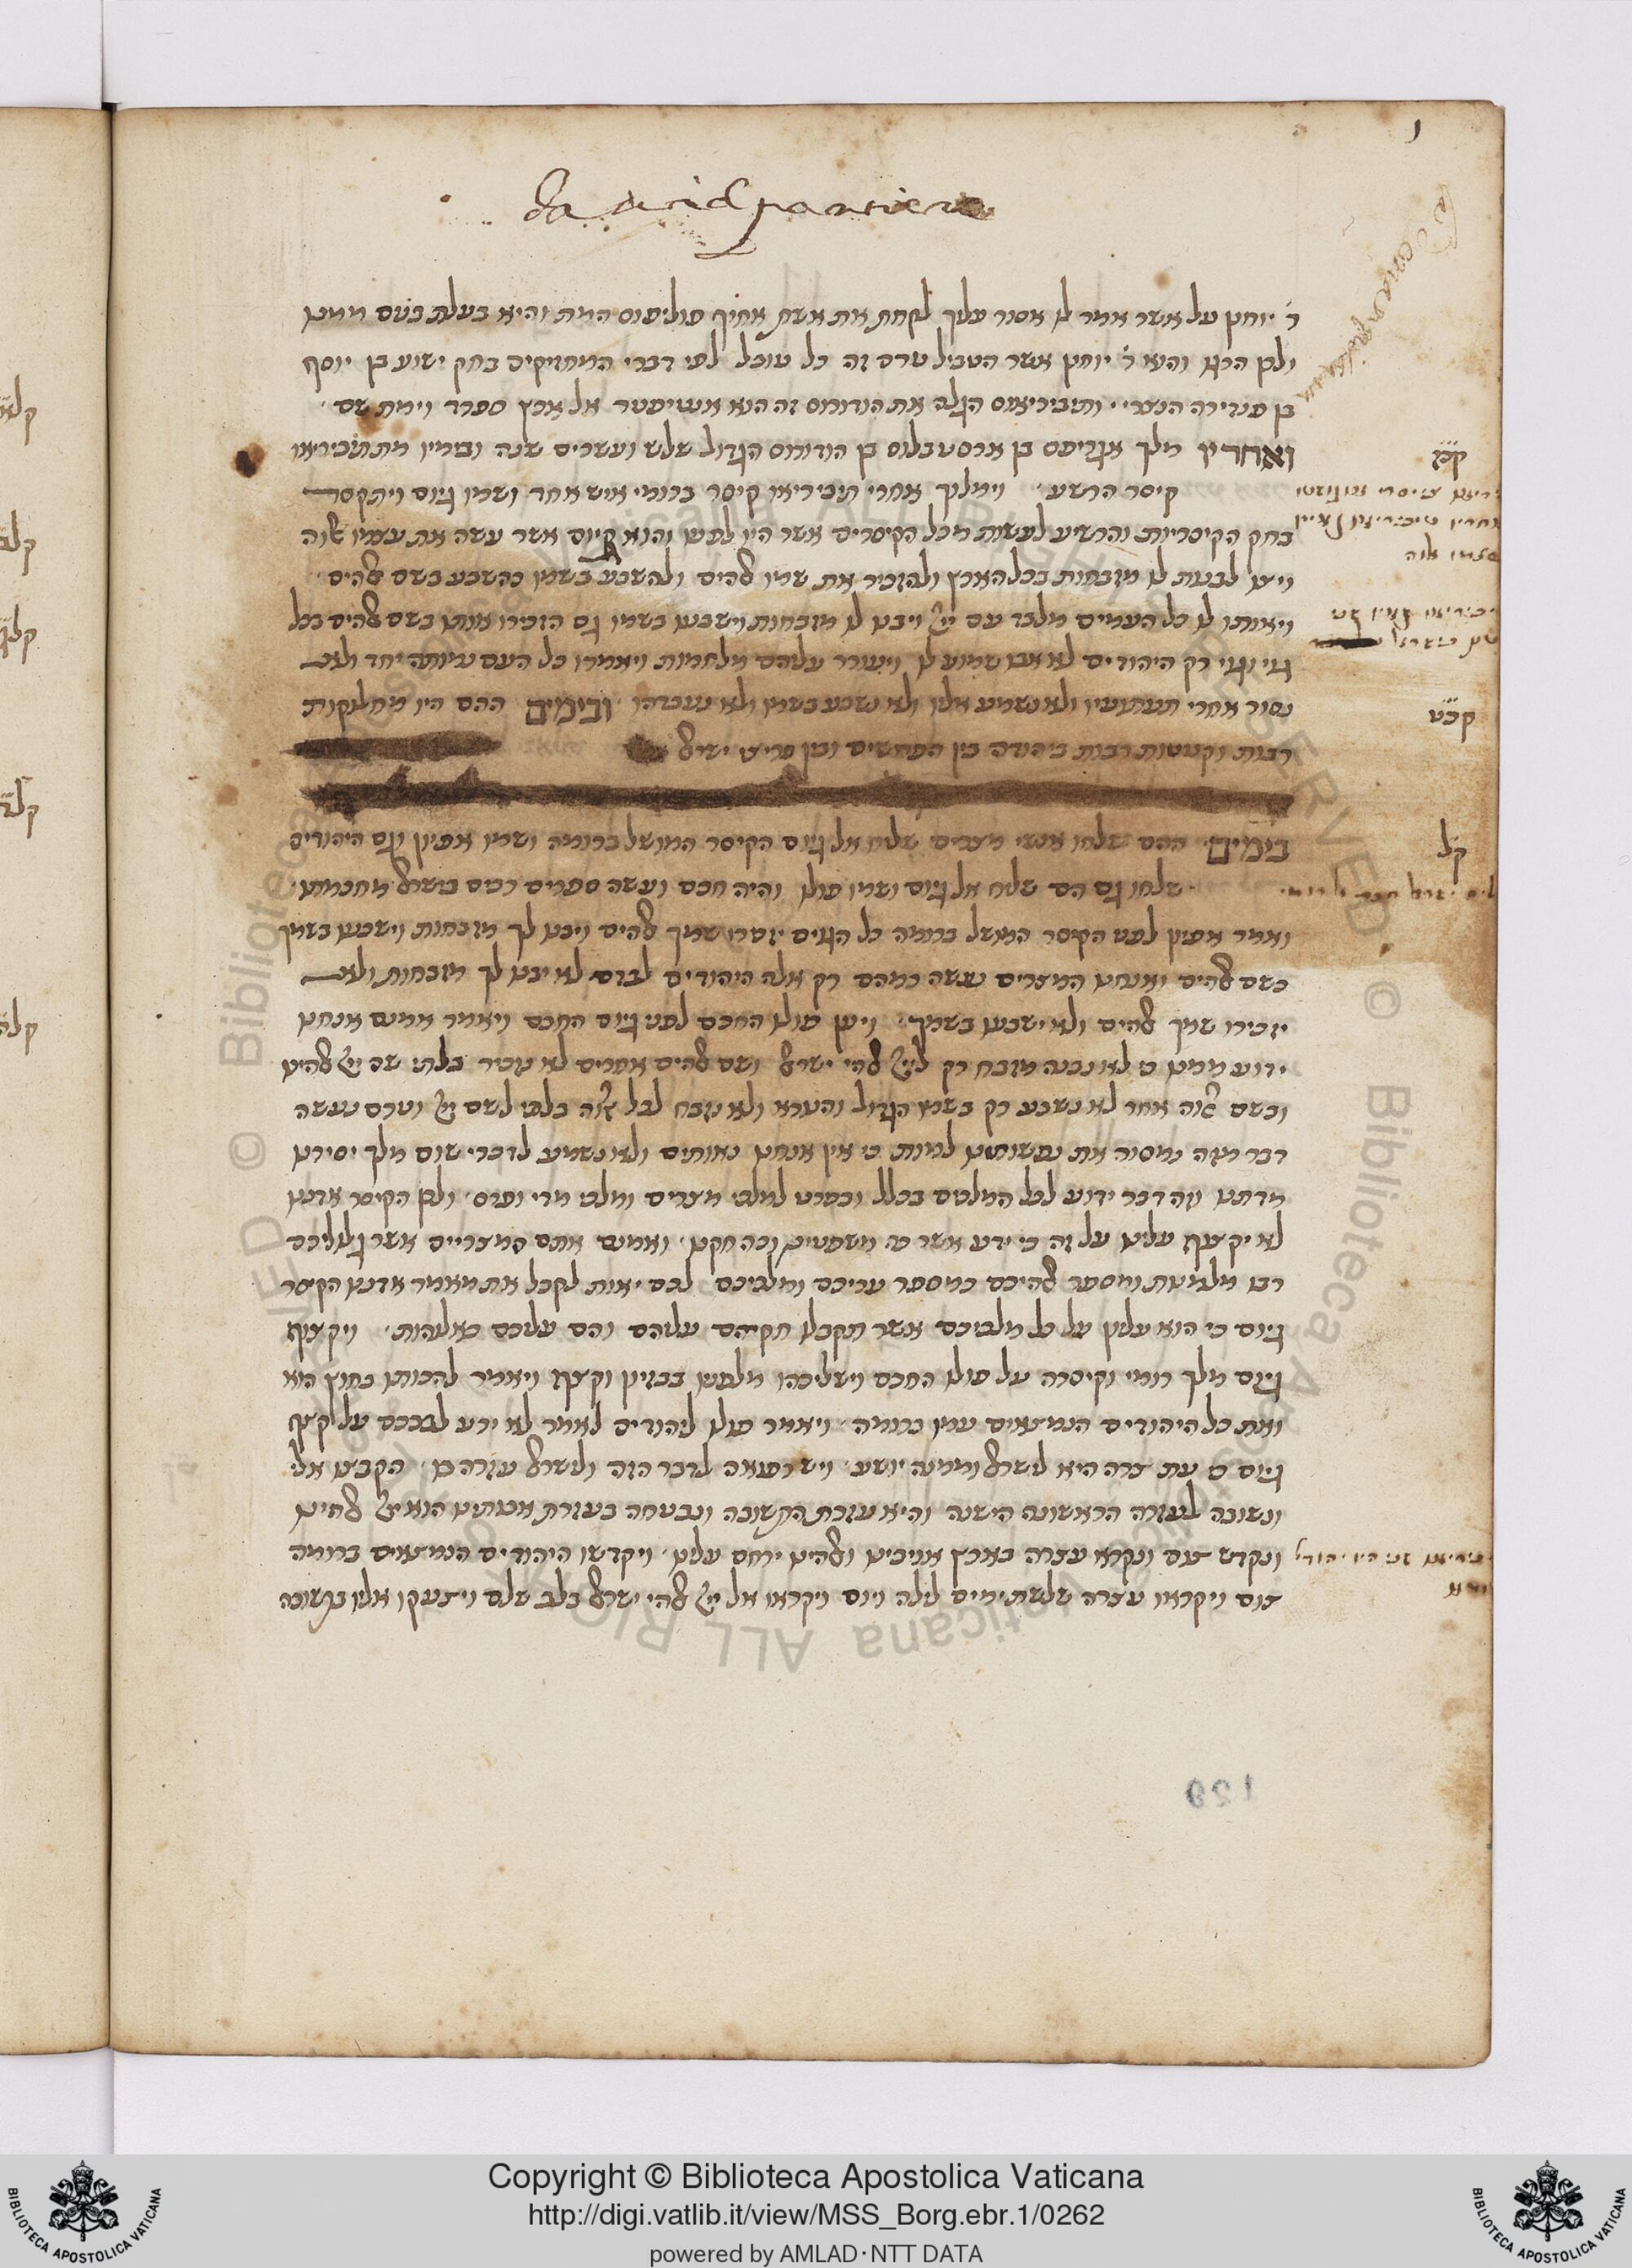 da david
ר׳ יוחנן על אשר אמר לו אסור עליך לקחת את אשת אחיך פוליפוס המת והיא בעלת בנים ממנו
ולכן הרגו והוא ר׳ יוחנן אשר הטביל טרם זה כל טובל לפי דברי המחזיקים בחק ישוע בן יוסף
בן פנדירה הנצרי׳ ותיביריאוס הגלה את הורודוס זה הנקרא אנטיפטר אל ארץ ספרד וימת שם׳
ואחריו מלך אגריפס בן ארסטבלוס בן הורודוס הגדול שלש ועשרים שנה ובימיו מת תיביריאו
קיסר הרשע׳ וימלוך אחרי תיביריאו קיסר ברומי איש אחד ושמו גיוס ויתקסר
בחק הקיסריות והרשיע לעשות מכל הקיסרים אשר היו לפניו והוא גיוס אשר עשה את עצמו אלוה
ויצו לבנות לו מזבחות בכל הארץ ולהזכיר את שמו אלהים ולהשבע בשמו כהשבע בשם אלהים
ויאותו לו כל העמים מלבד עם ייי ויבנו לו מזבחות וישבעו בשמו גם הזכירו אותו בשם אלהים בכל
גוי וגוי רק היהודים לא אבו שמוע לו ויעורר עליהם מלחמות ויאמרו כל העם נמותה יחד ולא
נסור אחרי תעתועיו ולא נשמע אליו ולא נשבע בשמו ולא נעבדהו ובימים ההם היו מחלוקות
רבות וקטטות רבות ביהודה בין הפרושים ובין פריצי ישראל
בימים ההם שלחו אנשי מצרים שליח אל גיוס הקיסר המושל ברומה ושמו אפיון וגם היהודים
שלחו גם הם שליח אל גיוס ושמו פולו והיה חכם ועשה ספרים רבים בישראל מחכמתו׳
ואמר אפיון לפני הקיסר המושל ברומה כל הגוים יזכירו שמך אלהים ויבנו לך מזבחות וישבעו בשמך
כשם אלהים ואנחנו המצרים נעשה כמהם רק אלה היהודים לבדם לא יבנו לך מזבחות ולא
יזכירו שמך אלהים ולא ישבעו בשמך׳ ויען פולו החכם לפני גיוס החכם ויאמר אמנם אנחנו
ידוע ממנו כי לא נבנה מזבח רק לייי אלהי ישראל ושם אלהים אחרים לא נזכיר בלתי שם ייי אלהינו
ובשם אלוה אחר לא נשבע רק בשמו הגדול והנורא ולא נזבח לכל אלוה בלתי לשם ייי וטרם נעשה
דבר מזה נמסור את נפשותינו למות כי אין אנחנו נאותים ולא נשמע לדברי שום מלך יסירנו
מדתנו וזה דבר ידוע לכל המלכים בכלל ובפרט למלכי מצרים ומלכי מדי ופרס׳ ולכן הקיסר אדננו
לא יקצוף עלינו על זה כי ידע אשר כי משפטינו וכה חקנו׳ ואמנם אתם המצריים אשר גלוליכם
רבו מלמנות ומספר אלהיכם כמספר עריכם ומלכיכם לכם יאות לקבל את מאמר אדננו הקיסר
גיוס כי הוא עליון על כל מלכיכם אשר תקבלו חקיהם עליהם והם עליכם כאלהות׳ ויקצוף
גיוס מלך רומי וקיסרה על פולו החכם וישליכהו מלפניו בבזיון וקצף ויאמר להכותו בחוץ הוא
ואת כל היהודים הנמצאים עמו ברומה׳ ויאמר פולו ליהודים לאמר לא ירע לבבכם על קצף
גיוס כי עת צרה היא לישראל וממנה יושע׳ ויש רפואה לדבר הזה ולישראל עזרה בו׳ הקבצו אלי
ונשובה לעזרה הראשונה הישנה והיא עזרת התשובה ונבטחה בעזרת אבותינו הוא ייי אלהינו
ונקדש צום ונקרא עצרה בארץ אויבינו ואלהינו ירחם עלינו׳ ויקדשו היהודים הנמצאים ברומה
צום ויקראו עצרה שלשת ימים לילה ויום ויקראו אל ייי אלהי ישראל בלב שלם ויצעקו אליו בתשובה
קכח
קכט
קל
129
Copyright © Biblioteca Apostolica Vaticana
http://digi.vatlib.it/view/MSS_Borg.ebr.1/0262
powered by AMLAD·NTT DATA
BIBLIOTECA APOSTOLICA VATICANA
BIBLIOTECA APOSTOLICA VATICANA